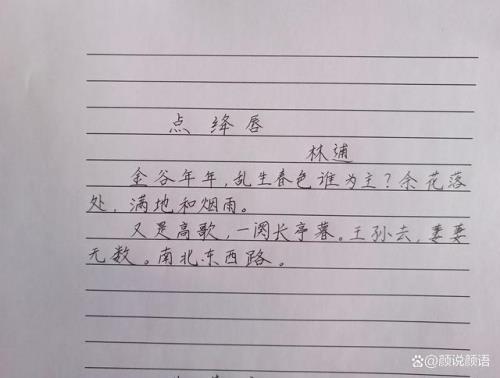 点绛唇
林逋
金谷年年，乱生春色谁为主？余花落
处，满地和烟雨。
又是高歌，一阕长亭暮。王孙去，萋萋
无数。南北东西路。
@颜说颜语